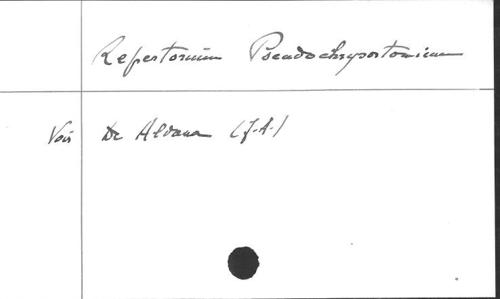 Repertorium Pseudochrysostomicum
Voir De Aldama (J.A.)